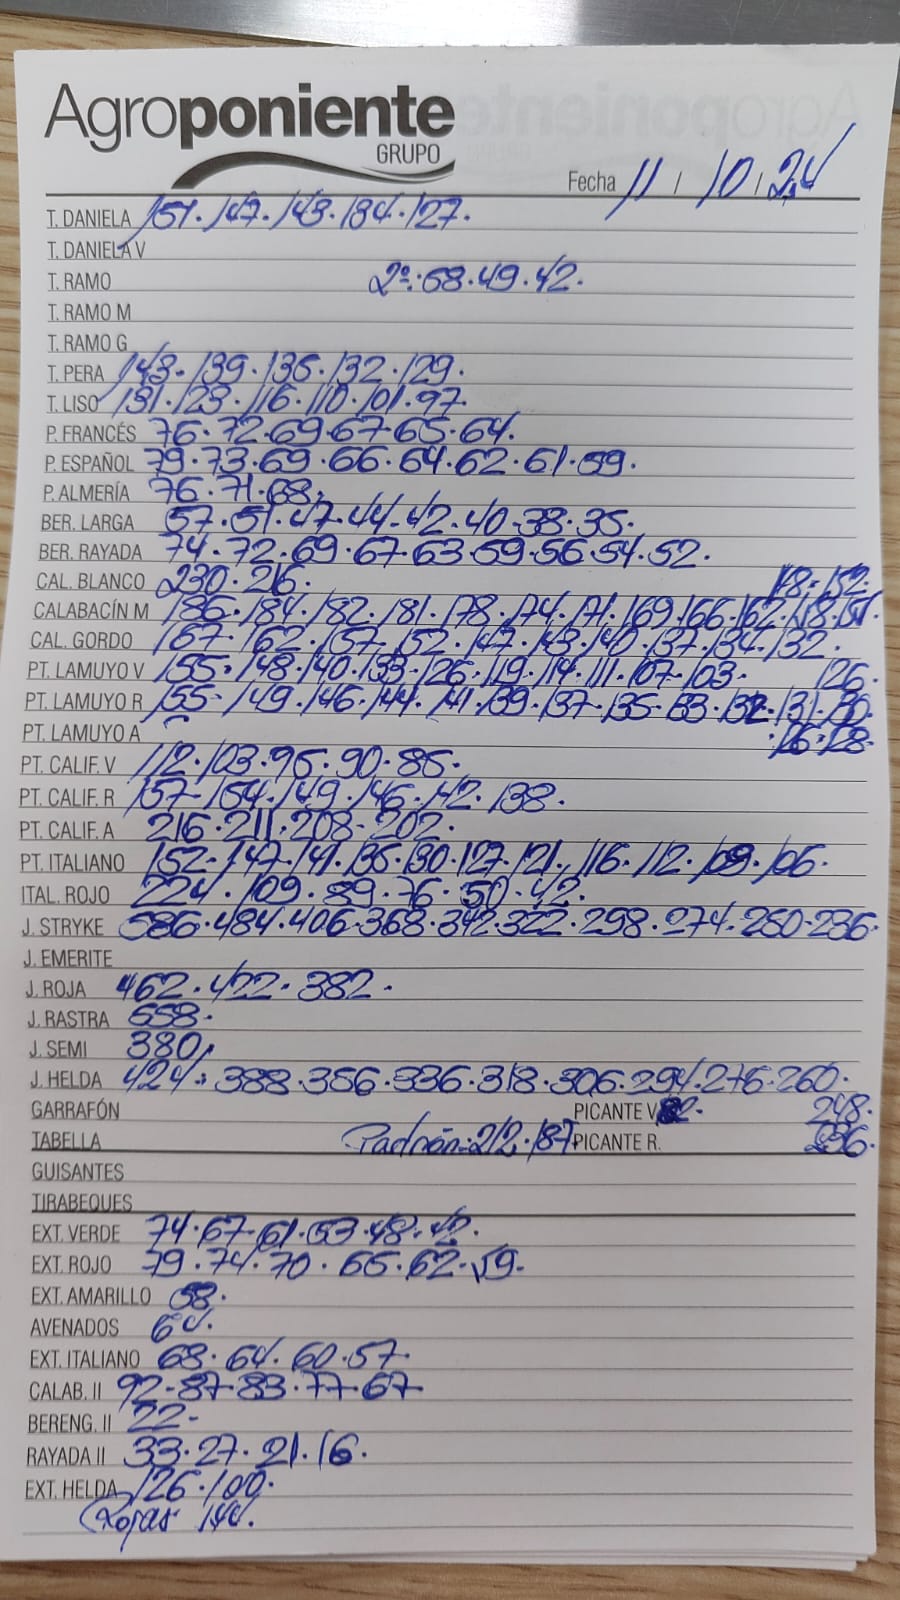 Agroponiente
GRUPO
Fecha 11 / 10 / 24
T. DANIELA 151. 147. 143. 134. 127.
T. DANIELA V
T. RAMO 2ª. 68. 49. 42.
T. RAMO M
T. RAMO G
T. PERA 143. 139. 136. 132. 129.
T. LISO 131. 123. 116. 110. 101. 97.
P. FRANCÉS 76. 72. 69. 67. 65. 64.
P. ESPAÑOL 79. 73. 69. 66. 64. 62. 61. 59.
P. ALMERÍA 76. 71. 68.
BER. LARGA 57. 51. 47. 44. 42. 40. 38. 35.
BER. RAYADA 74. 72. 69. 67. 63. 59. 56. 54. 52.
CAL. BLANCO 230. 216. 152.
CALABACÍN M 186. 184. 182. 181. 178. 174. 171. 169. 166. 162.
CAL. GORDO 167. 162. 157. 152. 147. 143. 140. 137. 134. 132.
PT. LAMUYO V 155. 148. 140. 133. 126. 119. 114. 111. 107. 103. 126.
PT. LAMUYO R 155. 149. 146. 144. 141. 139. 137. 135. 133. 132. 131. 130.
PT. LAMUYO A 128.
PT. CALIF. V 112. 103. 95. 90. 85.
PT. CALIF. R 157. 154. 149. 146. 142. 138.
PT. CALIF. A 216. 211. 208. 202.
PT. ITALIANO 152. 147. 141. 135. 130. 127. 121. 116. 112. 106.
ITAL. ROJO 224. 109. 89. 76. 50. 42.
J. STRYKE 586. 484. 406. 368. 342. 322. 298. 274.
J. EMERITE
J. ROJA 462. 422. 382.
J. RASTRA 658.
J. SEMI 380.
J. HELDA 424. 388. 356. 336. 318. 306. 294. 276. 260.
GARRAFÓN PICANTE V 248.
TABELLA Padrón: 212. 187 PICANTE R. 236.
GUISANTES
TIRABEQUES
EXT. VERDE 74. 67. 61. 53. 48. 42.
EXT. ROJO 79. 74. 70. 65. 62. 59.
EXT. AMARILLO 58.
AVENADOS 64.
EXT. ITALIANO 68. 64. 60. 57.
CALAB. II 92. 87. 83. 77. 67
BERENG. II 22.
RAYADA II 33. 27. 21. 16.
EXT. HELDA 126. 100.
Rojas 144.